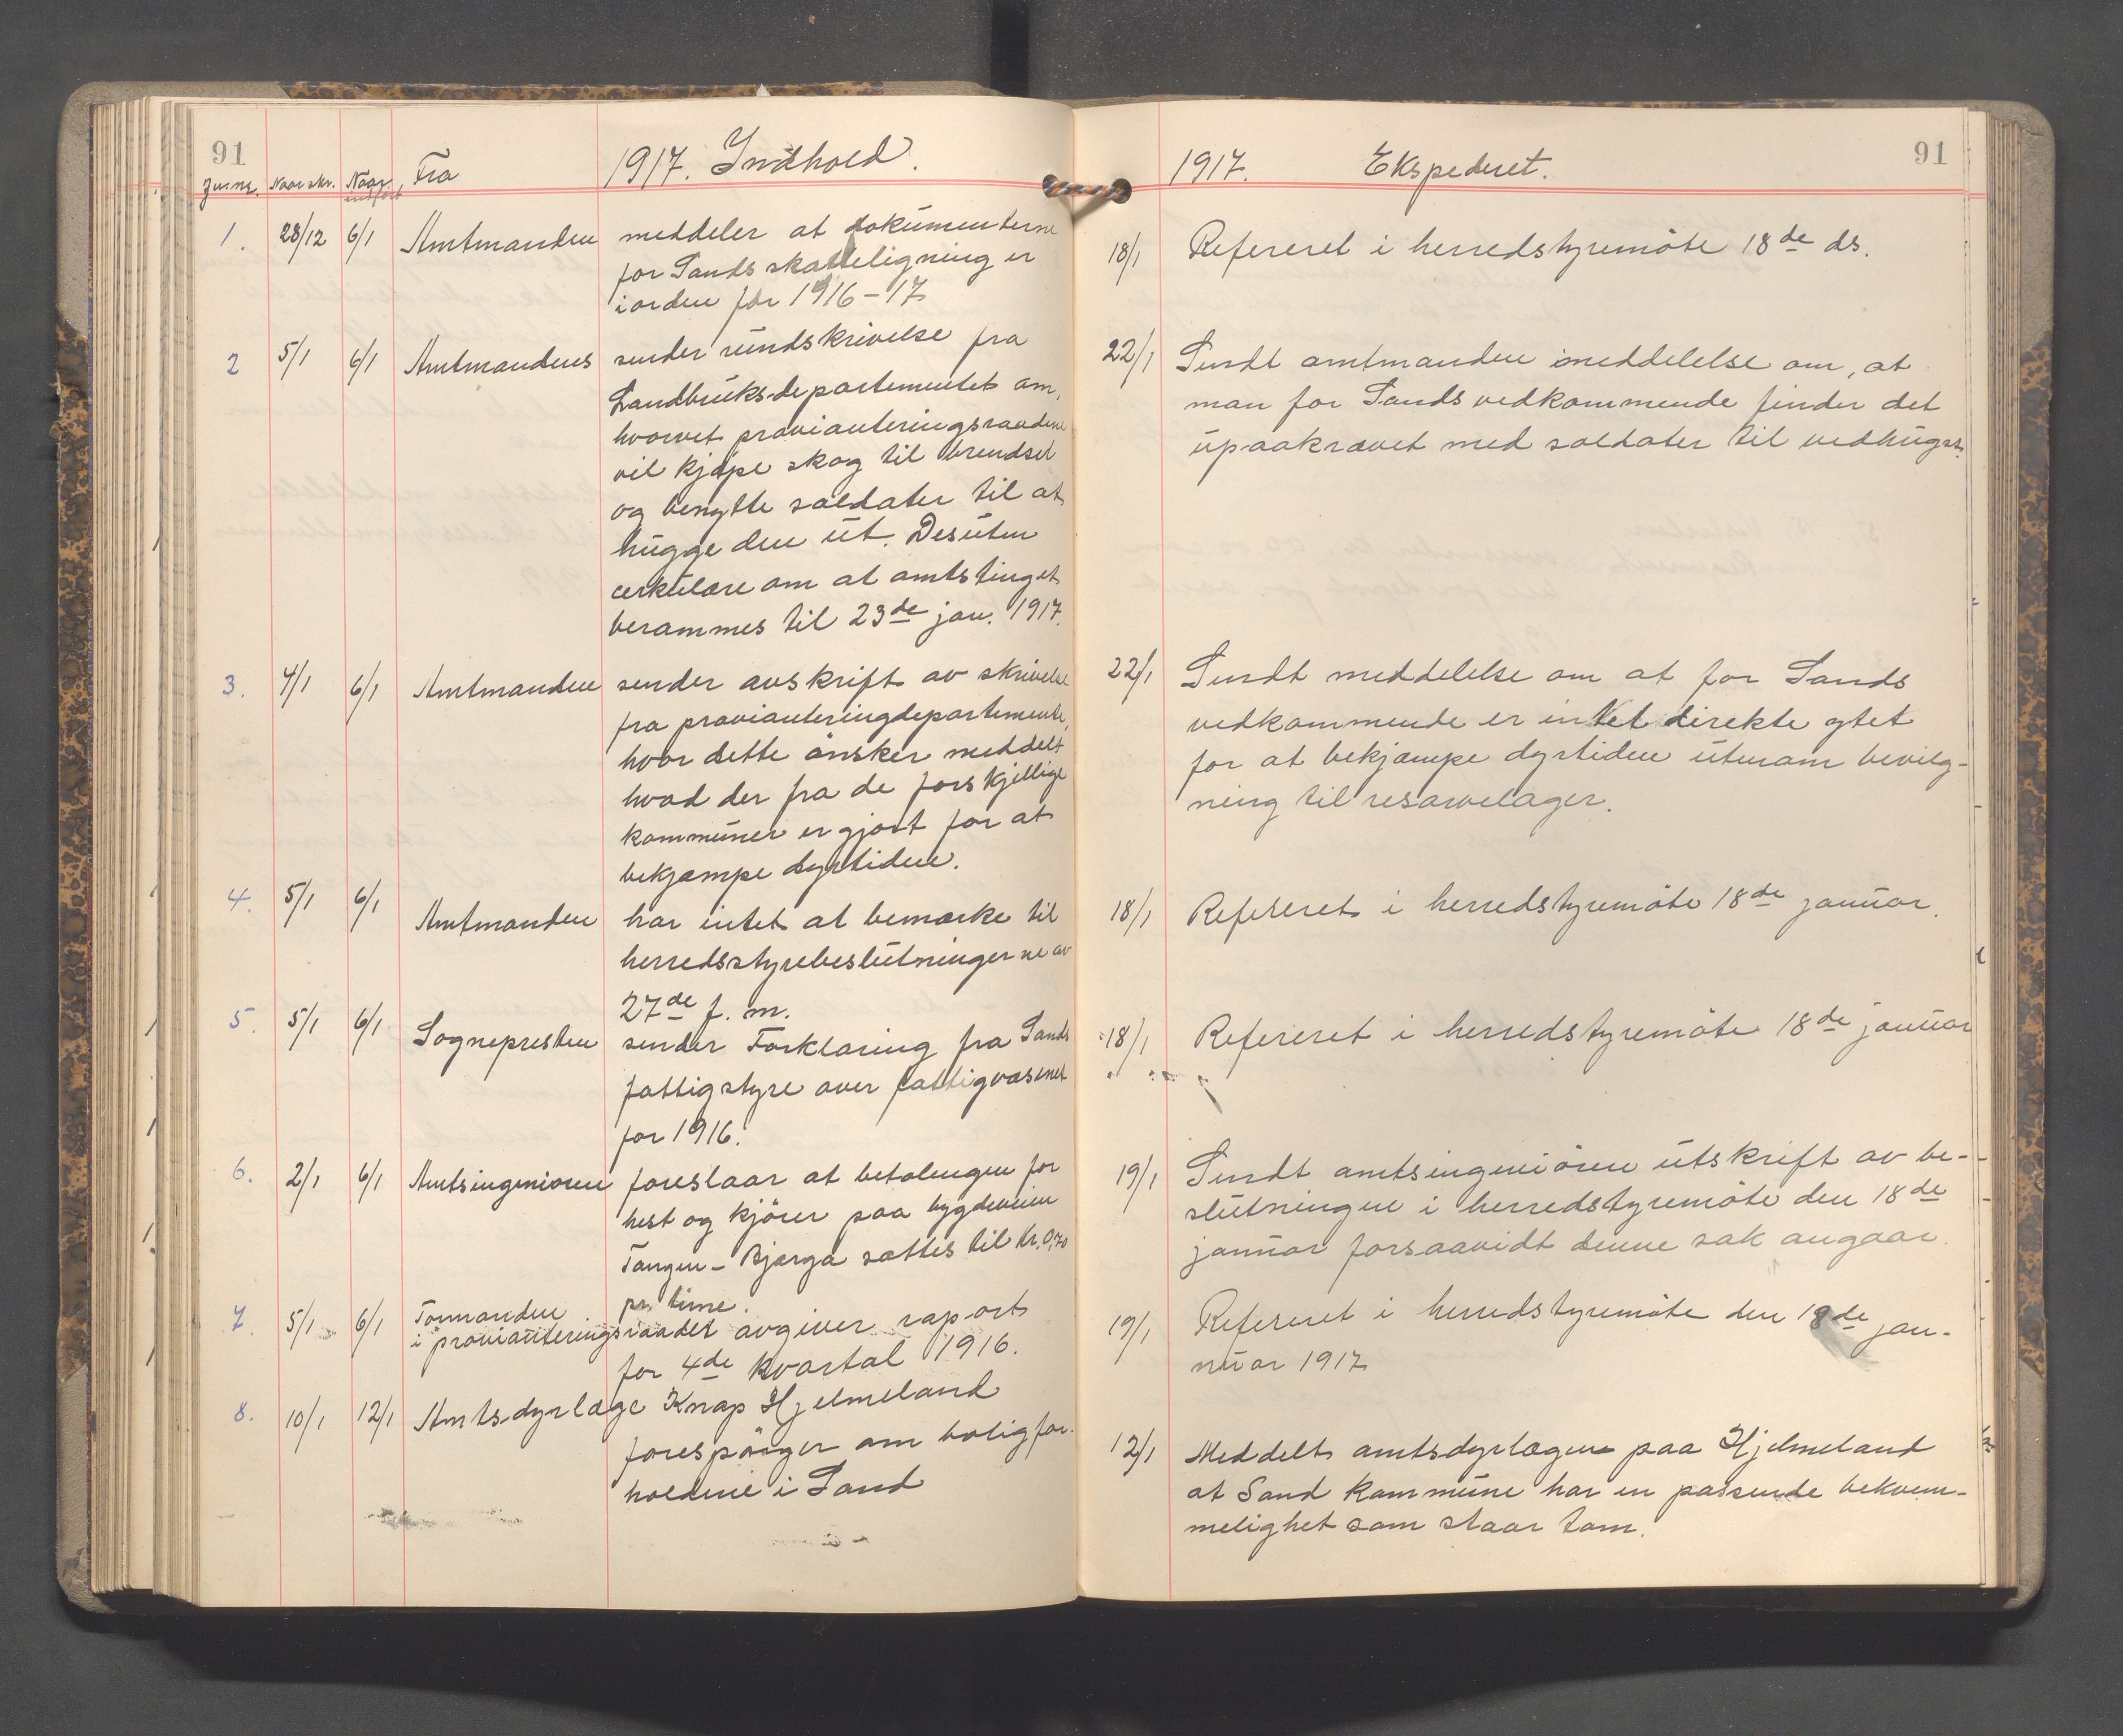 91
Ju.nr. Naar skr. Naar indført Fra 1917. Indhold.
1. 28/12 6/1 Amtmanden meddeler at dokumenterne
for Sands skatteligning er
iorden for 1916-17
2 5/1 6/1 Amtmandens sender rundskrivelse fra
Landbruks-departementet om,
hvorvet provianteringsraadene
vil kjøpe skog til brendsel
og benytte soldater til at
hugge den ut. Desuten
cirkulære om at amtstinget
berammes til 23de jan. 1917.
3. 4/1 6/1 Amtmanden sender avskrift av skrivelse
fra provianteringdepartemente,
hvor dette ønsker meddelt
hvad der fra de forskjellige
kommuner er gjort for at
bekjæmpe dyrtiden.
4. 5/1 6/1 Amtmanden har intet at bemærke til
herredsstyrebeslutningerne av
27de f. m.
5. 5/1 6/1 Sognepresten sender Forklaring fra Sands
fattigstyre over fattigvæsenet
for 1916.
6. 2/1 6/1 Amtsingeniøren foreslaar at betalingen for
hest og kjører paa bygdeveien
Tangen - Bjerga sættes til kr. 0,70
pr. time.
7. 5/1 6/1 Formanden
i provianteringsraadet avgiver raport
for 4de kvartal 1916.
8. 10/1 12/1 Amts-dyrlæge Knap Hjelmeland
forespørger om boligfor-
holdene i Sand
91
1917. Ekspederet.
18/1 Refereret i herredstyremøte 18de ds.
22/1 Sendt amtmanden meddelelse om, at
man for Sands vedkommende finder det
upaakrævet med soldater til vedhugst.
22/1 Sendt meddelelse om at for Sands
vedkommende er intet direkte ytet
for at bekjæmpe dyrtiden utenom bevilg-
ning til reservelager.
18/1 Refereret i herredstyremøte 18de januar.
18/1 Refereret i herredstyremøte 18de januar
19/1 Sendt amtsingeniøren utskrift av be-
slutningen i herredstyremøte den 18de
januar forsaavidt denne sak angaar.
19/1 Refereret i herredstyremøte den 18de jan-
nuar 1917
12/1 Meddelt amtsdyrlægen paa Hjelmeland
at Sand kommune har en passende bekvem-
melighet som staar tom.